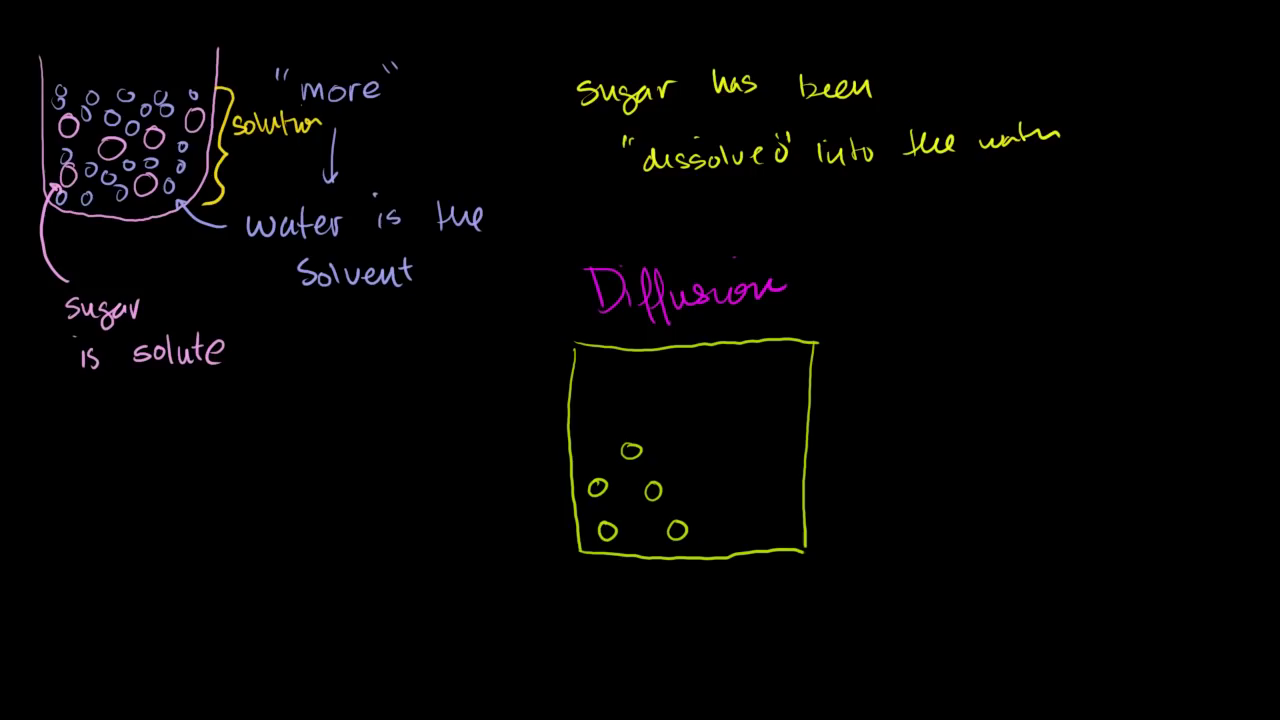 "more"
solution
water is the
solvent
sugar
is solute
sugar has been
"dissolved" into the water
Diffusion